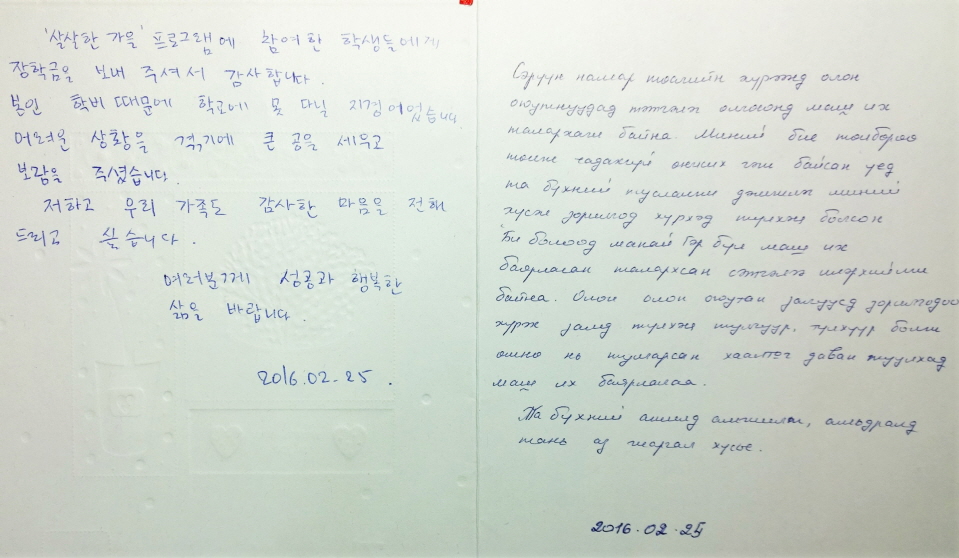 '쌀쌀한 가을' 프로그램에 참여한 학생들에게
장학금을 보내 주셔서 감사합니다.
본인 학비 때문에 학교에 못 다닐 지경이었습니다
어려운 상황을 겪기에 큰 공을 세우고
보람을 주셨습니다.
저하고 우리 가족도 감사한 마음을 전해
드리고 싶습니다.
여러분께 성공과 행복한
삶을 바랍니다.
2016.02.25.
Сэрүүн намар төслийн хүрээнд олон
оюутнуудад тэтгэлэг олгосонд маш их
талархаж байна. Миний бие төлбөрөө
төлж чадахгүй гэж байсан үед
та бүхний тусламж дэмжлэг миний
хүсэл зорилгод хүрэхэд түлхэц болсон
Би болоод манай гэр бүл маш их
баярласан талархсан сэтгэлээ илэрхийлж
байна. Олон олон оюутан залуусд зорилгодоо
хүрэх замд түлхэц түлхүүр болж
өмнө нь тулгарсан даван туулахад
маш их баярлалаа.
Та бүхний ажилд амжилт, амьдралд
тань аз жаргал хүсье.
2016.02.25